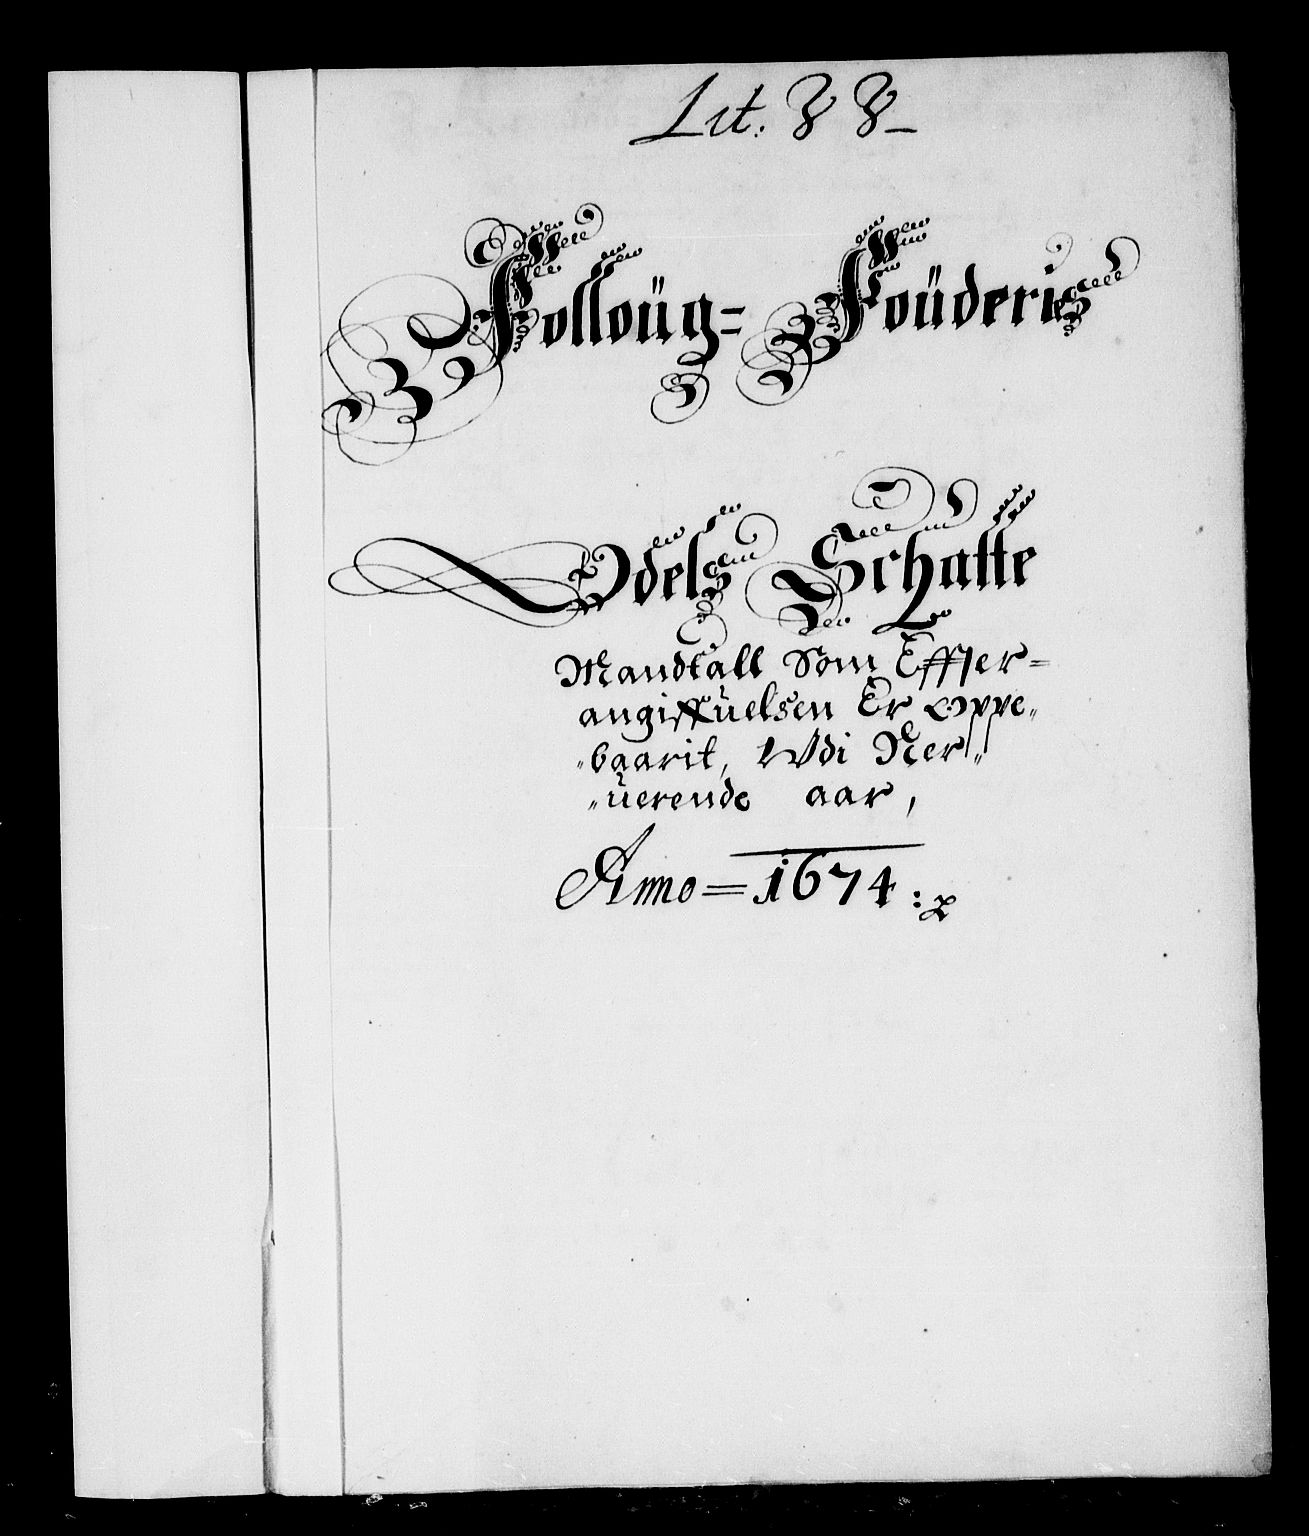 Lit. B B
Folloüg= Foüderis
Odels Schatte
Mandtall Som Effter=
angiffüelsen Er oppe„
„baarit, Udi Ner„
„üerende aar,
Anno= 1674: